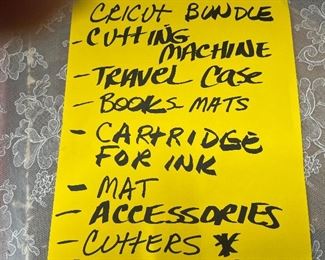 CRICUT BUNDLE
- CUTTING
MACHINE
- TRAVEL CASE
- BOOKS MATS
- CARTRIDGE
FOR INK
- MAT
- ACCESSORIES
- CUTTERS *